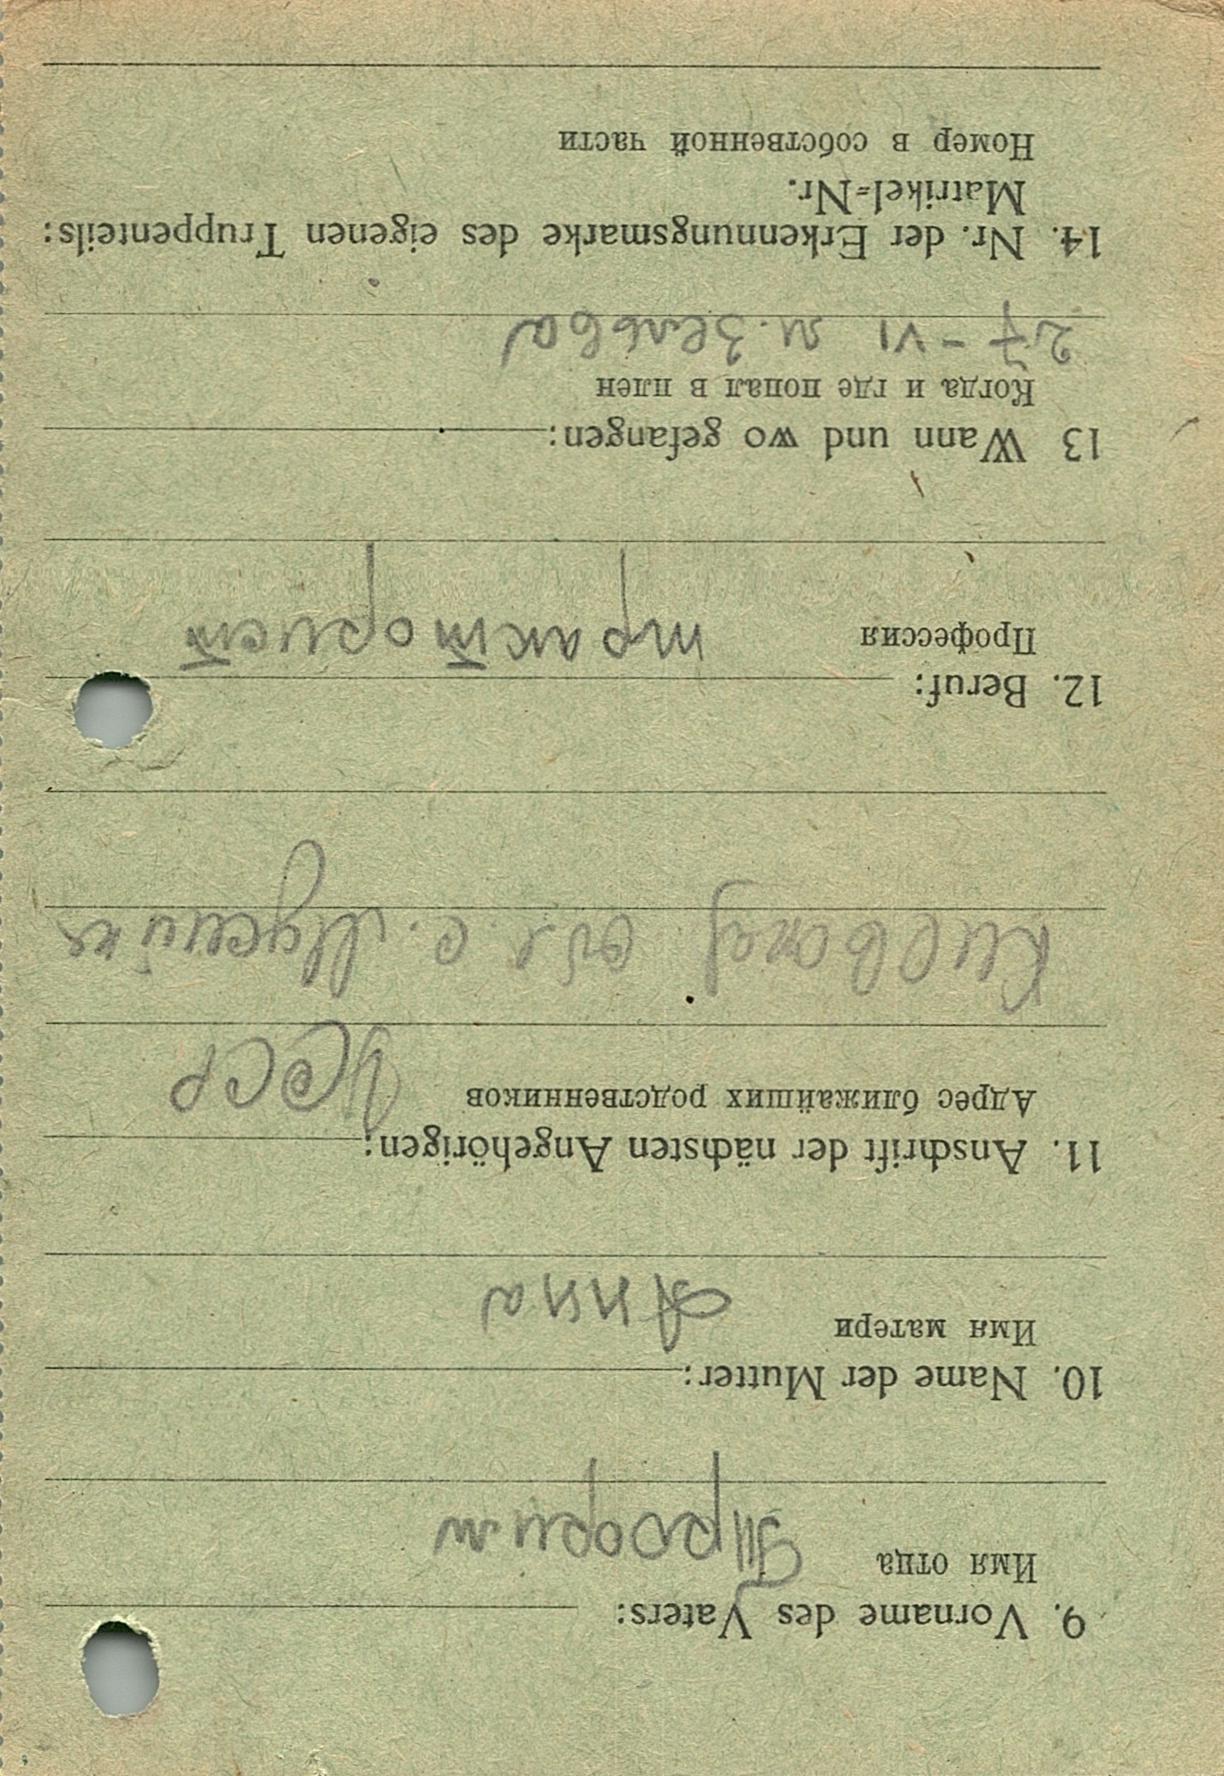 9. Vorname des Vaters:
Имя отца
10. Name der Mutter:
Имя матери Анна
11. Anschrift der nächsten Angehörigen:
Адрес ближайших родственников УССР
обл. с.
12. Beruf:
Профессия тракторист
13 Wann und wo gefangen:
Когда и где попал в плен
27-VI м. Зельва
14. Nr. der Erkennungsmarke des eigenen Truppenteils:
Matrikel=Nr.
Номер в собственной части